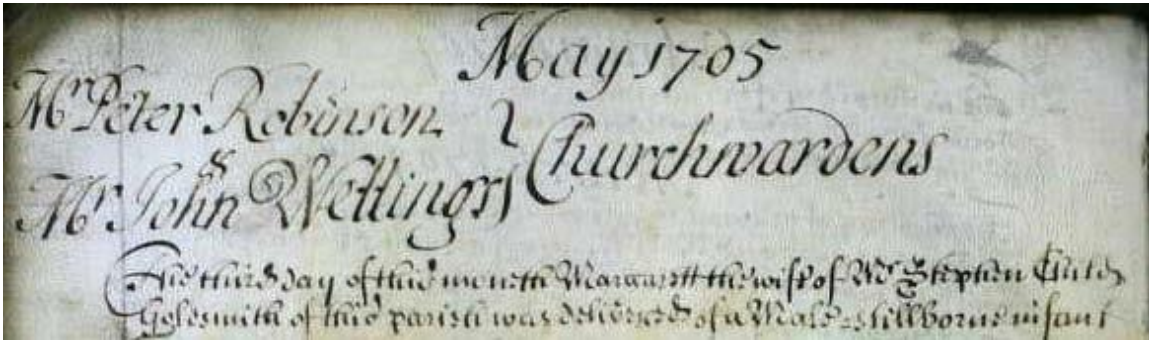 May 1705
Mr Peter Robinson
&
Churchwardens
Mr John Wettings
The third day of this moneth Margarett the wife of Mr Stephen Child
Goldsmith of this parish was delivered of a Male stillborne infant